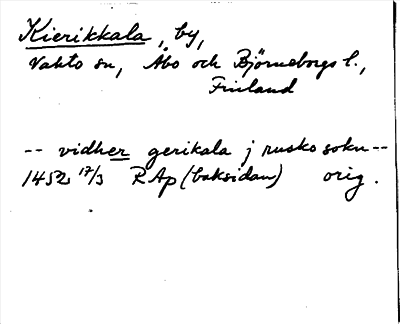 Kierikkala, by,
Vahto sn, Åbo och Björneborgs l.,
Finland
-- vidher gerikala j rusko sokn --
1452 17/3 RAp (baksidan) orig.